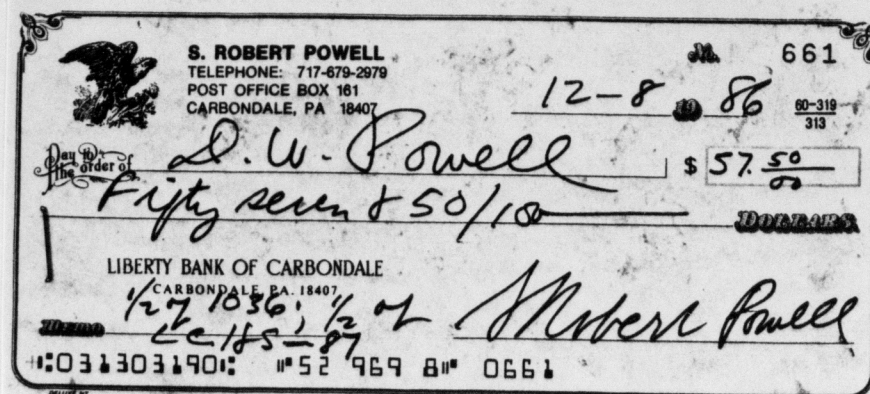 S. ROBERT POWELL
TELEPHONE: 717-679-2979
POST OFFICE BOX 161
CARBONDALE, PA 18407
No. 661
12-8 19 86
60-319
313
Pay to the order of D. W. Powell $ 57. 50/00
Fifty seven & 50/100 DOLLARS
LIBERTY BANK OF CARBONDALE
CARBONDALE, PA. 18407
1/2 of 1036; 1/2 of
MEMO
S Robert Powell
⑆031303190⑆ ⑈52 969 8⑈ 0661